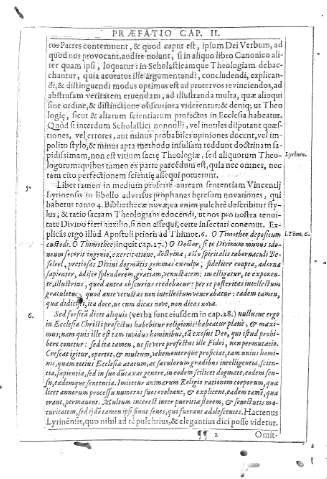 PRÆFATIO CAP. II.
cos Patres contemnunt, & quod caput est, ipsum Dei Verbum, ad
quod nos provocant, audire nolunt, si in aliquo libro Canonico ali-
ter quam ipsi, loquatur: in Scholasticamque Theologiam debac-
chantur, quia acutiores ille argumentandi, concludendi, explican-
di, & distinguendi modus optimus est ad proterros revincendos, ad
abstrusam veritatem eruendam, ad illustranda multa, quæ alioqui
sine ordine, & distinctione obscuriora viderentur: & deniq; ut Theo-
logiæ, sicut & aliarum scientiarum profectus in Ecclesia habeatur.
Quod si interdum Scholastici nonnulli, vel inutiles disputant quæs-
tiones, vel errores, aut minus probabiles opiniones docent, vel im-
polito stylo, & minus apta methodo insulsam reddunt doctrinam sa-
pidissimam, non est vitium sacræ Theologiæ, sed aliquorum Theo-
logorum: quibus tamen ex parte parcendum est, quia nec omnes, nec
tam cito perfectionem scientiæ assequi potuerunt.
Liber tamen in medium proferre auream sententiam Vincentij
Lyrinensis in libello adversus prophanas heresum novationes, qui
habetur tomo 4. Bibliothecæ
lus, & ratio sacram Theologiam edocendi, ut nos pro nostra tenui-
tate Divino freti auxilio, si non assequi, certe insectari conemur. Ex-
plicat ergo illud Apostoli priori ad Timoth. 6. O Timothee depositum
custodi. O Timothee (inquit cap. 27.) O Doctor, si te Divinum munus ido-
neum fecerit ingenio, exercitatione, doctrina, esto spiritalis tabernaculi Be-
seleel, pretiosas Divini dogmatis gemmas exculpe, fideliter coapta, adorna
sapienter, adijce splendorem, gratiam, venustatem: intelligatur, te exponen-
te, illustrius, quod antea obscurius credebatur: per te posteritas intellectum
gratuletur, quod ante vetustas non intellectum venerabatur: eadem tamen,
quæ didicisti, ita doce, ut cum dicas nove, non dicas nova.
Sed forsitan dicit aliquis (verba sunt eiusdem in cap. 28.) nullusne ergo
in Ecclesia Christi profectus habebitur religionis? habeatur plane, & maxi-
mus; nam quis ille est tam invidus hominibus, tam exosus Deo, qui istud prohi-
bere conetur: sed ita tamen, ut sit vere profectus ille Fidei, non permutatio.
Crescat igitur, oportet, & multum, vehementerque proficiat, tam unius homi-
nis, quam totius Ecclesiæ ætatum, ac sæculorum gradibus intelligentia, scien-
tia, sapientia, sed in suo dumtaxat genere, in eodem scilicet dogmate, eodem sen-
su, eademque sententia. Imitetur animarum Religio rationem corporum, quæ
licet annorum processu numeros suos evolvant, & explicent, eadem tamen, quæ
erant, permanent. Multum interest inter pueritiæ florem, & senectutis ma-
turitatem, sed ijdem tamen ipsi fiunt senes, qui fuerant adolescentes. Hactenus
Lyrinensis, quo nihil ad rē pulchrius, & elegantius dici posse videtur.
¶¶ 2
Omit-
Lyrinen.
1. Tim. 6.
5.
6.